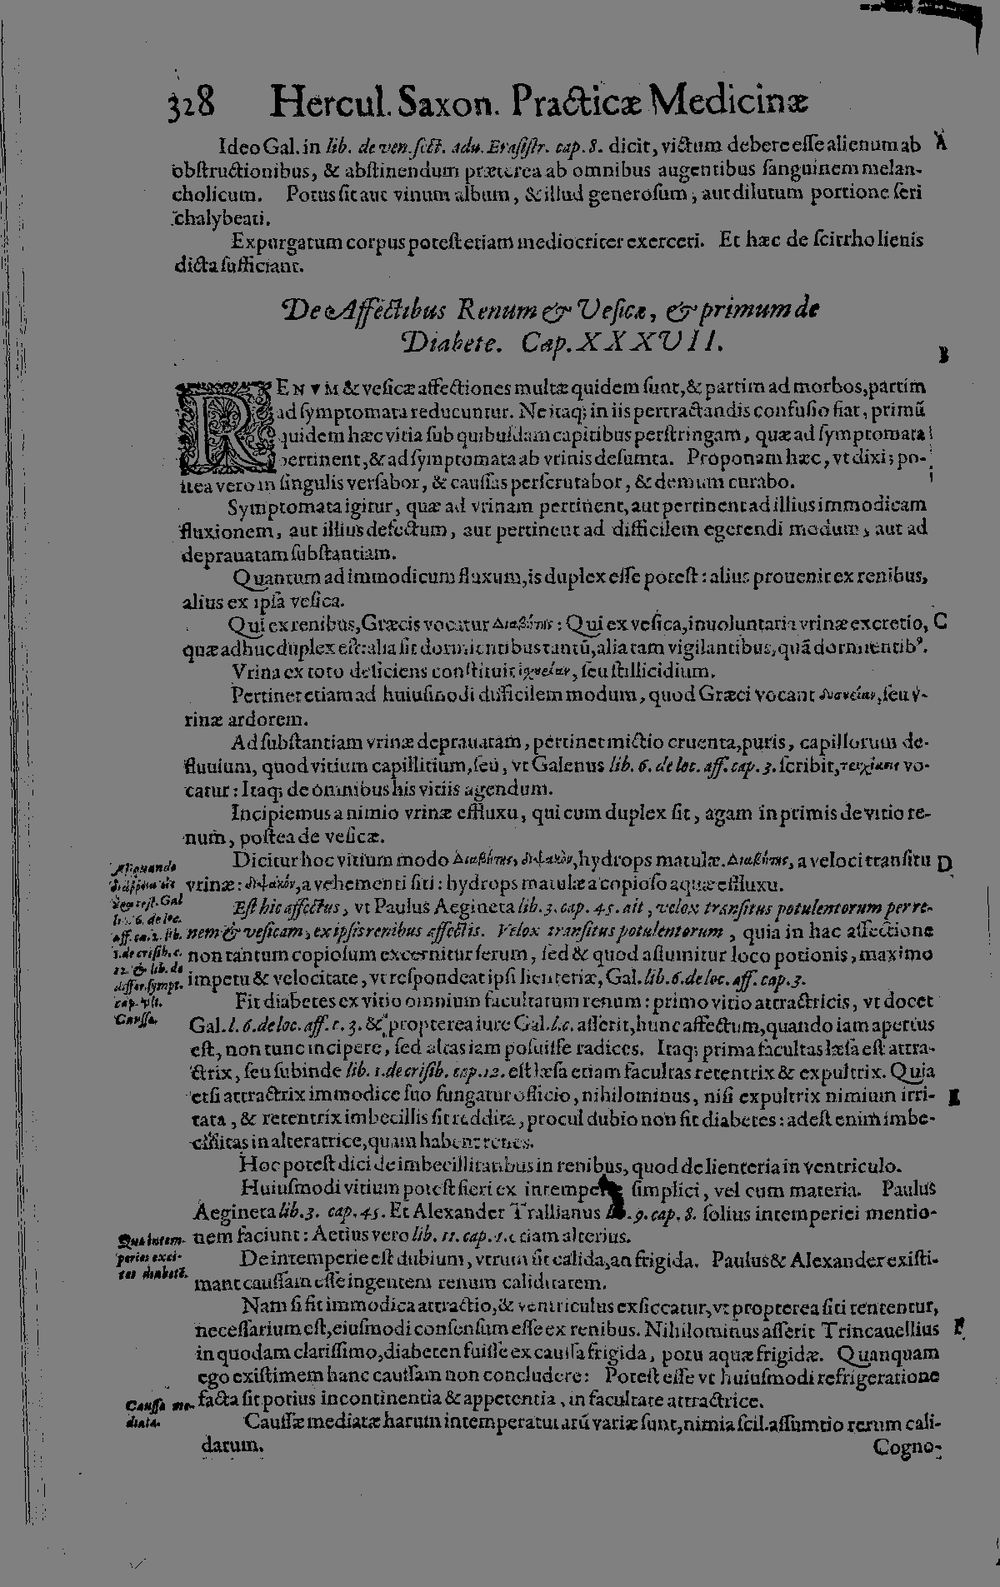 328 Hercul. Saxon. Practicæ Medicinæ
Ideo Gal. in lib. de ven. ſect. adu. Eraſiſtr. cap. 8. dicit, victum debere eſſe alienum ab A
obſtructionibus, & abſtinendum præterea ab omnibus augentibus ſanguinem melan-
cholicum. Potus ſit aut vinum album, & illud generoſum, aut dilutum portione ſeri
chalybeati.
Expurgatum corpus poteſt etiam mediocriter exerceri. Et hæc de ſcirrho lienis
dicta ſufficiant.
De Affectibus Renum & Veſicæ, & primum de
Diabete. Cap. XXXVII.
B
RENVM & veſicæ affectiones multæ quidem ſunt, & partim ad morbos, partim
ad ſymptomata reducuntur. Ne itaq; in iis pertractandis confuſio fiat, primũ
quidem hæc vitia ſub quibuſdam capitibus perſtringam, quæ ad ſymptomata
pertinent, & ad ſymptomata ab vrinis deſumta. Proponam hæc, vt dixi; po-
ſtea vero in ſingulis verſabor, & cauſſas perſcrutabor, & demum curabo.
Symptomata igitur, quæ ad vrinam pertinent, aut pertinent ad illius immodicam
fluxionem, aut illius defectum, aut pertinent ad difficilem egerendi modum, aut ad
deprauatam ſubſtantiam.
Quantum ad immodicum fluxum, is duplex eſſe poteſt: alius prouenit ex renibus,
alius ex ipſa veſica.
Qui ex renibus, Græcis vocatur Διαβήτης: Qui ex veſica, inuoluntaria vrinæ excretio, C
quæ adhuc duplex eſt: alia ſit dormientibus tantũ, alia tam vigilantibus, quã dormientibꝰ.
Vrina ex toto deficiens conſtituit ἰσχουρίαν, ſeu ſtillicidium.
Pertinet etiam ad huiuſmodi difficilem modum, quod Græci vocant δυσουρίαν, ſeu v-
rinæ ardorem.
Ad ſubſtantiam vrinæ deprauatam, pertinet mictio cruenta, puris, capillorum de-
fluuium, quod vitium capillitium, ſeu, vt Galenus lib. 6. de loc. aff. cap. 3. ſcribit, τριχίασιν vo-
catur: Itaq; de omnibus his vitiis agendum.
Incipiemus a nimio vrinæ effluxu, qui cum duplex ſit, agam in primis de vitio re-
num, poſtea de veſicæ.
Dicitur hoc vitium modo Διαβήτης, διψακὸν, hydrops matulæ. Διαβήτης, a veloci tranſitu D
vrinæ: διψακὸν, a vehementi ſiti: hydrops matulæ a copioſo aquæ effluxu.
Aliquando
dipſacus dici poteſt. Gal
lib. 6. de loc.
aff. ca. 3. lib.
1. de criſib. c.
12. & lib. de
differ. ſympt.
cap. vlt.
Cauſſa.
Eſt hic affectus, vt Paulus Aegineta lib. 3. cap. 45. ait, velox tranſitus potulentorum per re-
nem & veſicam, ex ipſis renibus affectis. Velox tranſitus potulentorum, quia in hac affectione
non tantum copioſum excernitur ſerum, ſed & quod aſſumitur loco potionis, maximo
impetu & velocitate, vt reſpondeat ipſi lienteriæ, Gal. lib. 6. de loc. aff. cap. 3.
Fit diabetes ex vitio omnium facultatum renum: primo vitio attractricis, vt docet
Gal. l. 6. de loc. aff. c. 3. & propterea iure Gal. l.c. aſſerit, hunc affectum, quando iam apertus
eſt, non tunc incipere, ſed altas iam poſuiſſe radices. Itaq; prima facultas læſa eſt attra-
ctrix, ſeu ſubinde lib. 1. de criſib. cap. 12. eſt læſa etiam facultas retentrix & expultrix. Quia
etſi attractrix immodice ſuo fungatur officio, nihilominus, niſi expultrix nimium irri- E
tata, & retentrix imbecillis ſit reddita, procul dubio non fit diabetes: adeſt enim imbe-
cillitas in alteratrice, quam habent renes.
Hoc poteſt dici de imbecillitatibus in renibus, quod de lienteria in ventriculo.
Huiuſmodi vitium poteſt fieri ex intemperie ſimplici, vel cum materia. Paulus
Aegineta lib. 3. cap. 45. Et Alexander Trallianus lib. 9. cap. 8. ſolius intemperiei mentio-
nem faciunt: Aetius vero lib. 11. cap. 1. etiam alterius.
Quæ intem-
peries exci-
tet diabetē.
De intemperie eſt dubium, vtrum ſit calida, an frigida. Paulus & Alexander exiſti-
mant cauſſam eſſe ingentem renum caliditatem.
Nam ſi fit immodica attractio, & ventriculus exſiccatur, vt propterea ſiti tententur,
neceſſarium eſt, eiuſmodi conſenſum eſſe ex renibus. Nihilominus aſſerit Trincauellius F
in quodam clariſſimo, diabeten fuiſſe ex cauſſa frigida, potu aquæ frigidæ. Quanquam
ego exiſtimem hanc cauſſam non concludere: Poteſt eſſe vt huiuſmodi refrigeratione
facta ſit potius incontinentia & appetentia, in facultate attractrice.
Cauſſæ me-
diatæ.
Cauſſæ mediatæ harum intemperaturarũ variæ ſunt, nimia ſcil. aſſumtio rerum cali-
darum.
Cogno-